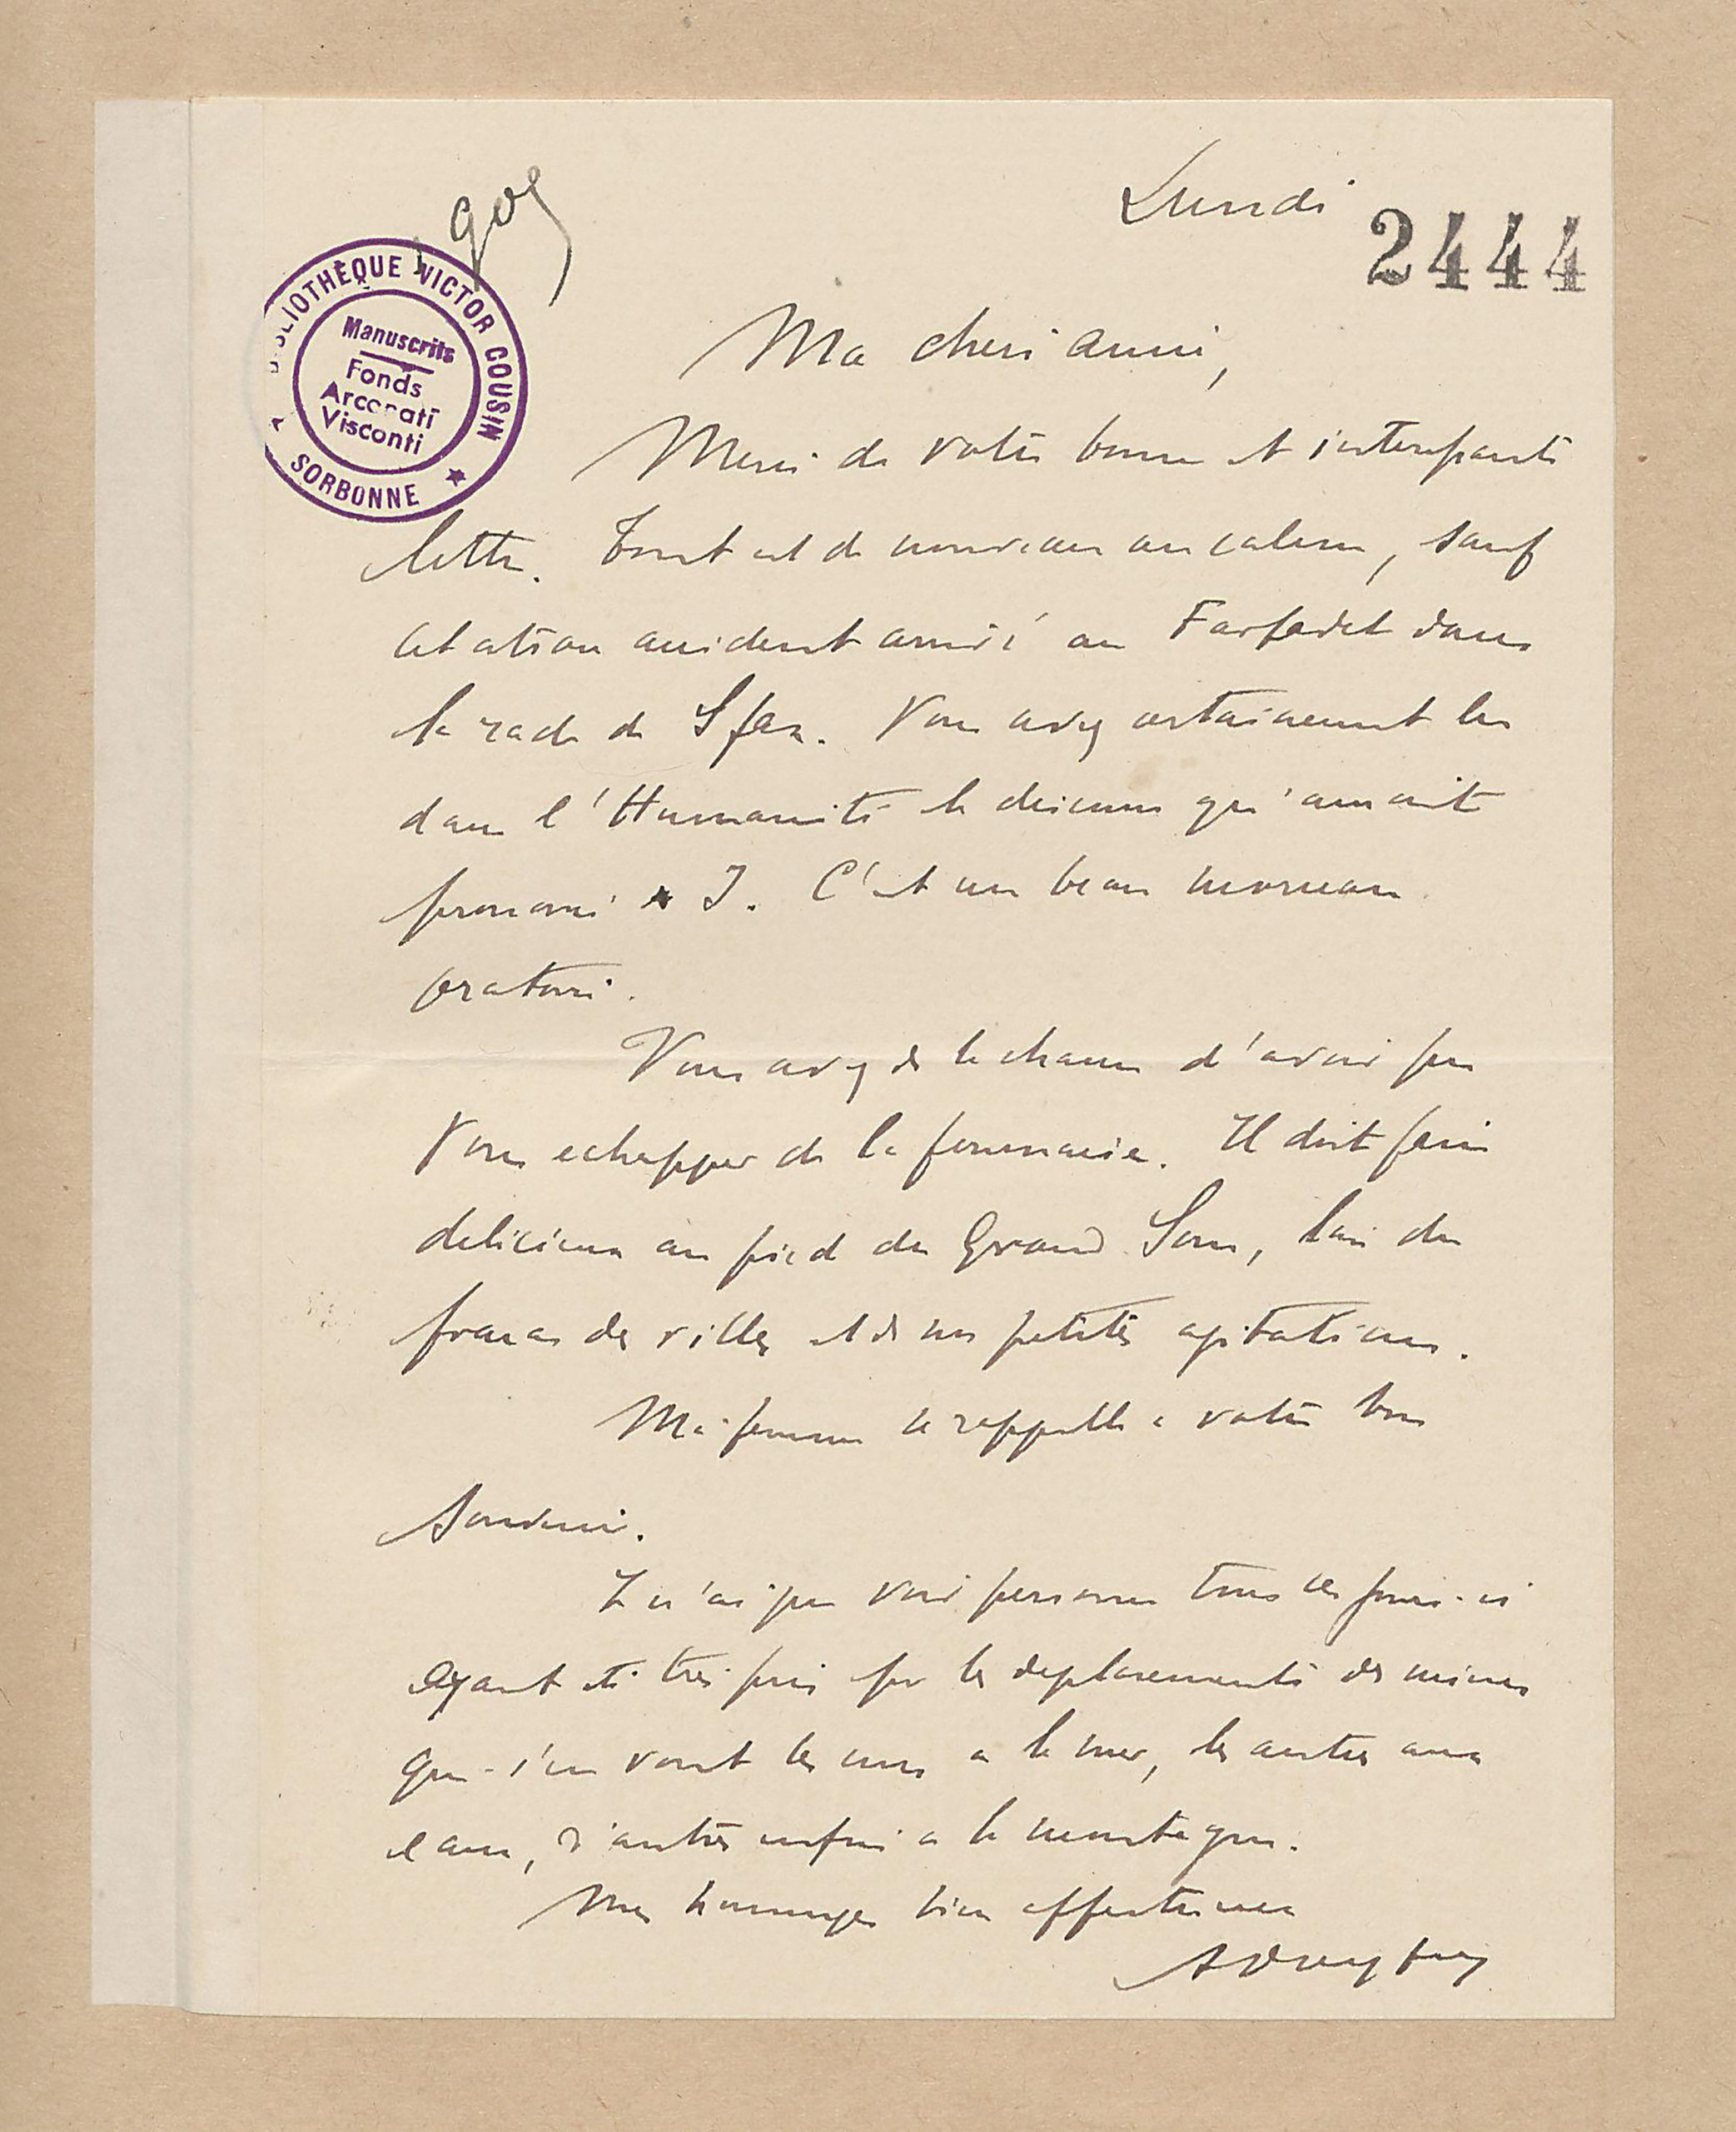 Lundi
2444
BIBLIOTHÈQUE VICTOR COUSIN
Manuscrits
Fonds
Arconati
Visconti
SORBONNE
Ma chère amie,
Merci de votre bonne et intéressante
lettre. Tout est de nouveau au calme, sauf
cet atroce accident arrivé au Farfadet dans
la rade de Sfax. Vous avez certainement lu
dans l'Humanité le discours qu'aurait
prononcé J. C'est un beau morceau
oratoire.
Vous avez de la chance d'avoir pu
vous echapper de la fournaise. Il doit faire
delicieux au pied du Grand Som, loin du
fracas des villes et de nos petites agitations.
Ma femme se rappelle a votre bon
souvenir.
Je n'ai pu voir personne tous ces jours-ci
ayant été très pris par les deplacements des miens
qui s'en vont les uns a la mer, les autres aux
eaux, d'autres enfin a la montagne.
Mes hommages bien affectueux
ADreyfus